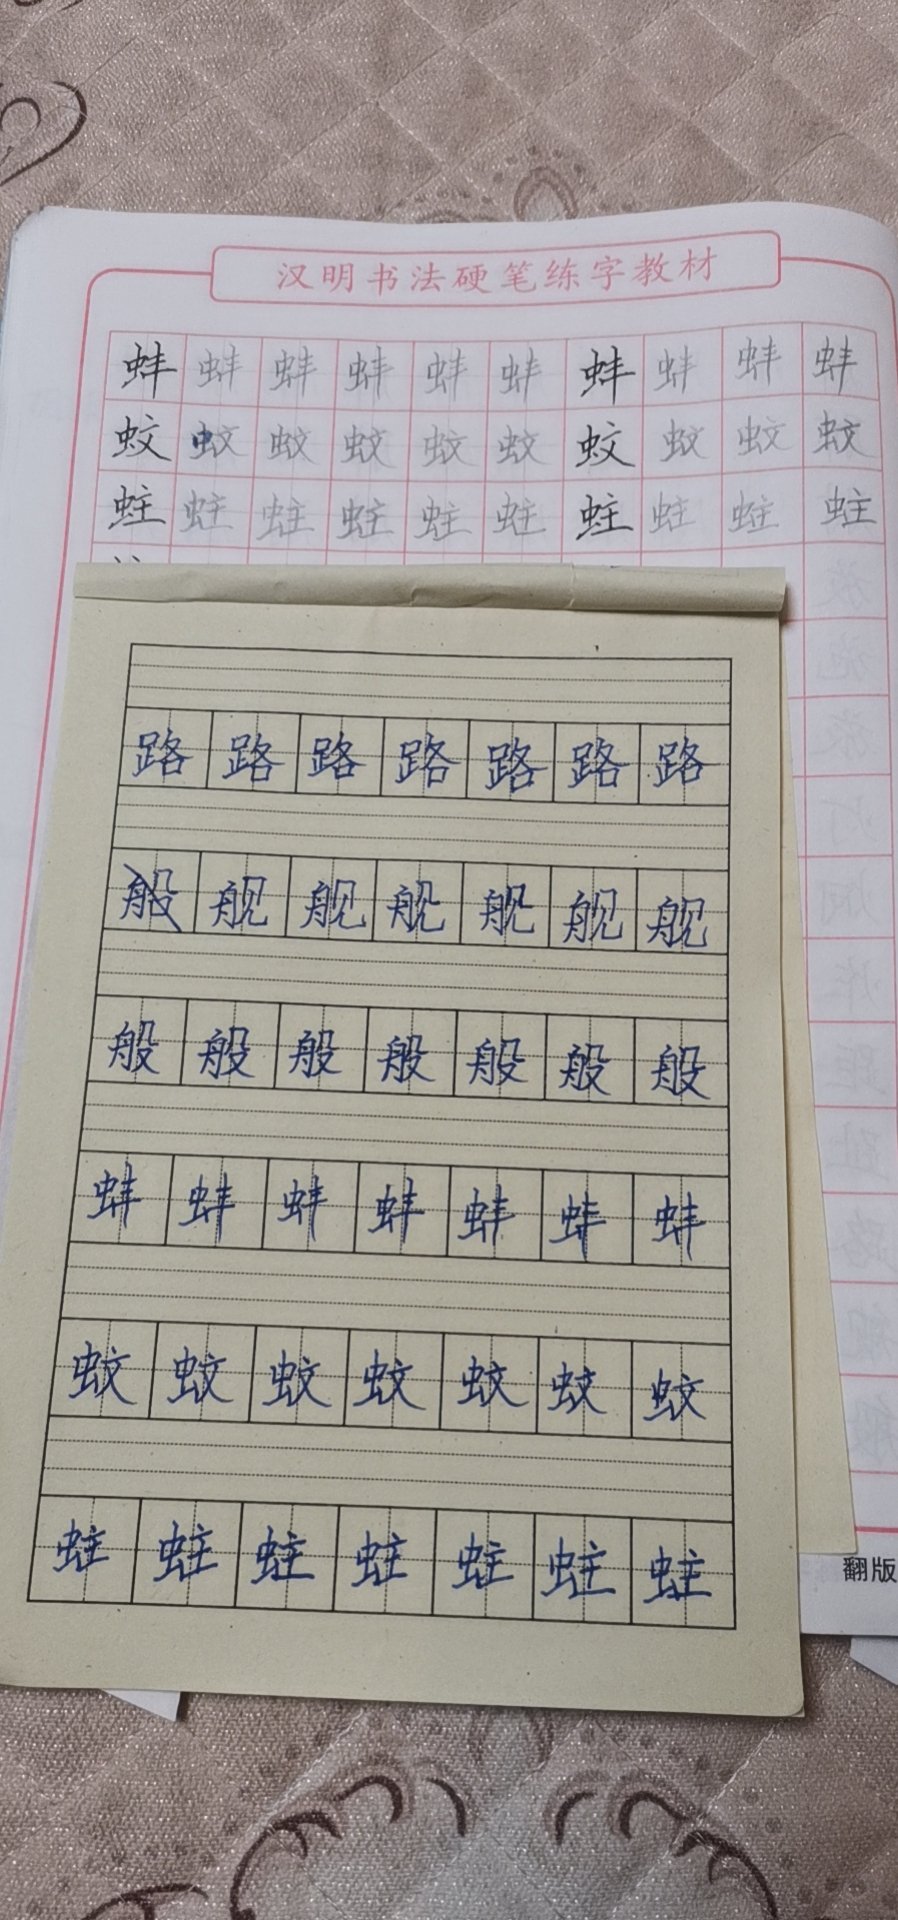 汉明书法硬笔练字教材
蚌蚌蚌蚌蚌蚌蚌蚌蚌蚌
蚊蚊蚊蚊蚊蚊蚊蚊蚊蚊
蛀蛀蛀蛀蛀蛀蛀蛀蛀蛀
路路路路路路路
般舰舰舰舰舰舰
般般般般般般般
蚌蚌蚌蚌蚌蚌蚌
蚊蚊蚊蚊蚊蚊蚊
蛀蛀蛀蛀蛀蛀蛀
翻版